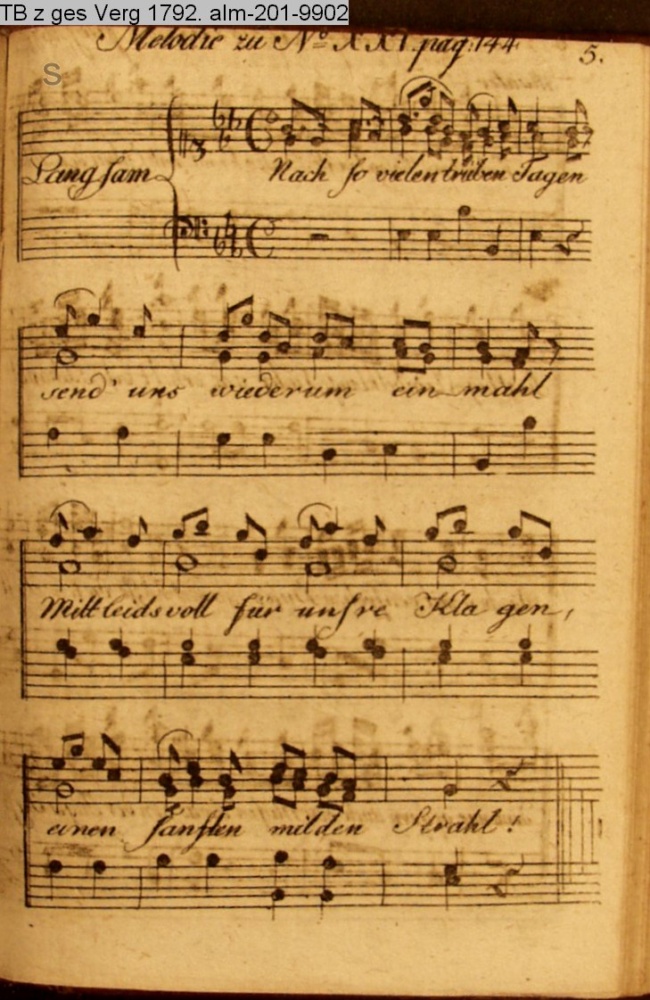 TB z ges Verg 1792. alm-201-9902
Melodie zu No XXI. pag: 144.
5.
S
Langsam
Nach so vielen trüben Tagen
send' uns wiederum ein mahl
Mittleidsvoll für unsre Kla gen,
einen sanften milden Strahl!